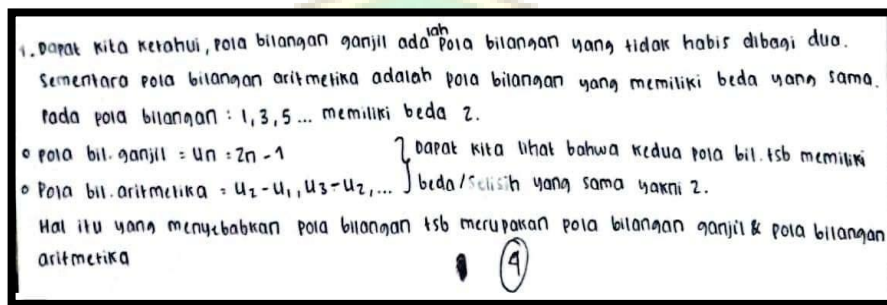 1. Dapat kita ketahui, pola bilangan ganjil adalah pola bilangan yang tidak habis dibagi dua.
Sementara pola bilangan aritmetika adalah pola bilangan yang memiliki beda yang sama.
Pada pola bilangan : 1, 3, 5 ... memiliki beda 2.
o Pola bil. ganjil = Un = 2n - 1 } Dapat kita lihat bahwa kedua pola bil. tsb memiliki
o Pola bil. aritmetika = U2 - U1, U3 - U2, ... } beda / selisih yang sama yakni 2.
Hal itu yang menyebabkan pola bilangan tsb merupakan pola bilangan ganjil & pola bilangan
aritmetika
4